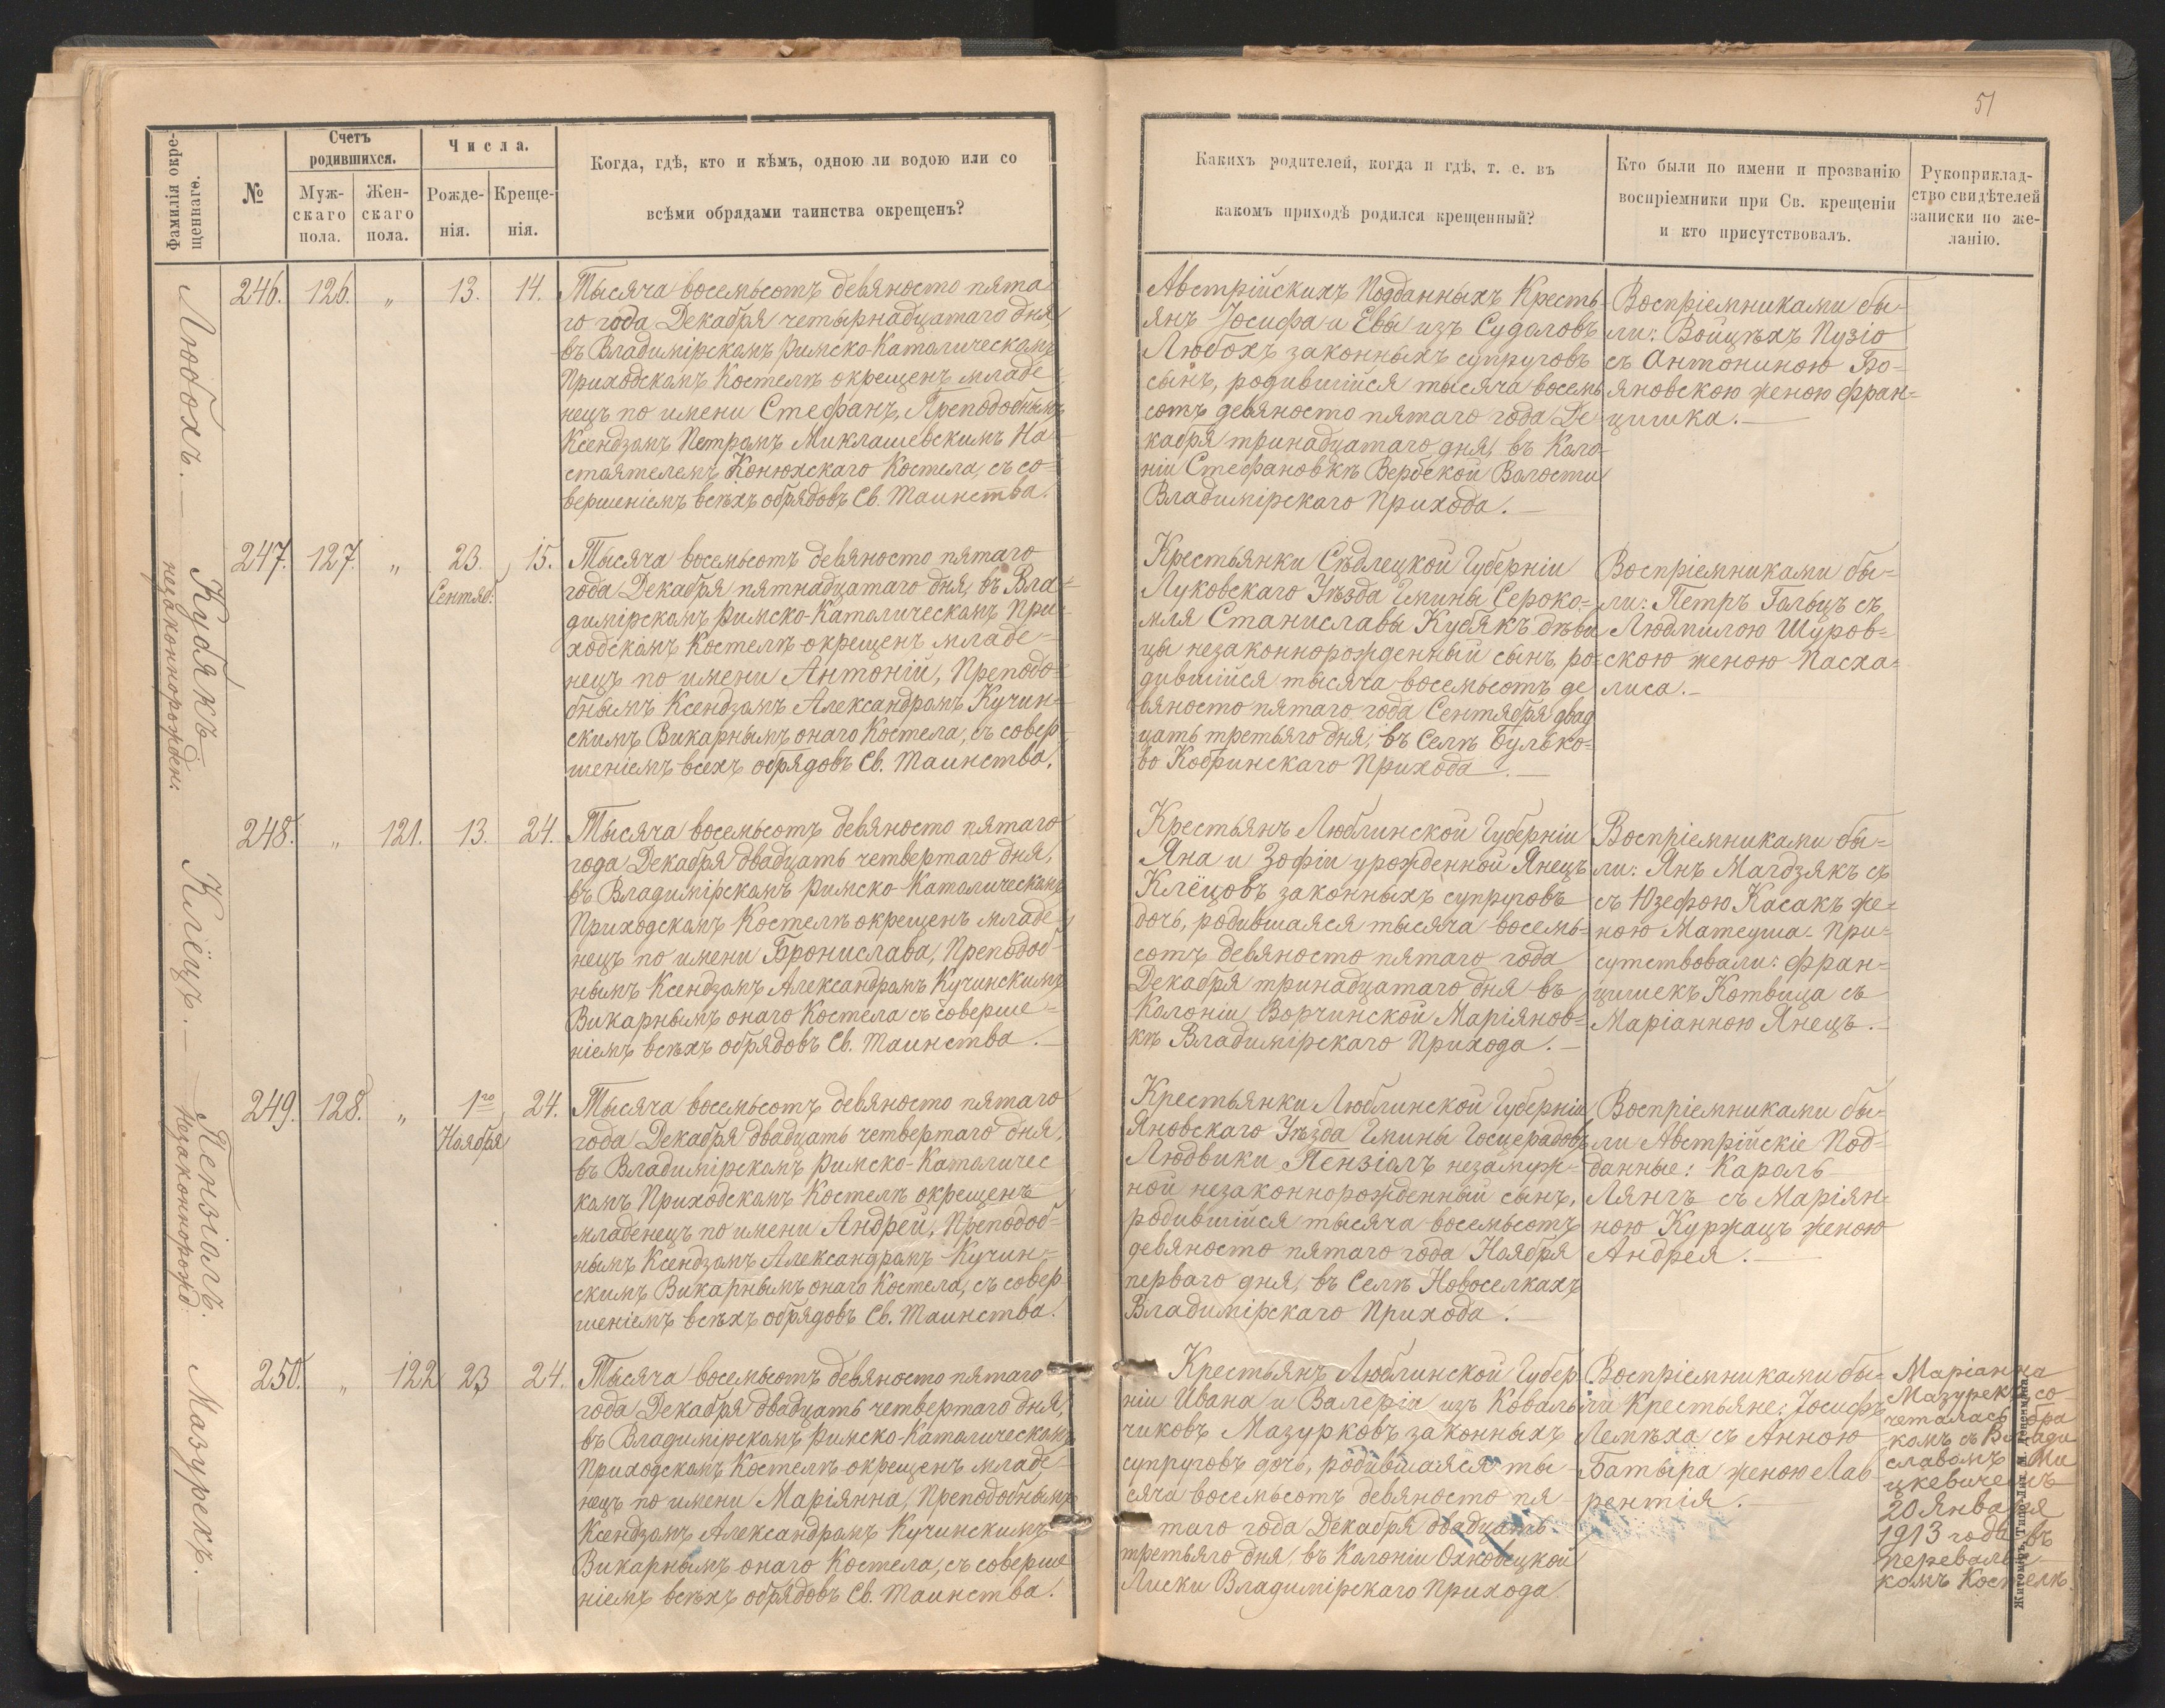 51
Фамилія окре-
щеннаго.
№
Счетъ
родившихся.
Муж-
скаго
пола.
Жен-
скаго
пола.
Числа.
Рожде-
нія.
Креще-
нія.
Когда, гдѣ, кто и кѣмъ, одною ли водою или со
всѣми обрядами таинства окрещенъ?
Какихъ родителей, когда и гдѣ, т. е. въ
какомъ приходѣ родился крещенный?
Кто были по имени и прозванію
воспріемники при Св. крещеніи
и кто присутствовалъ.
Рукоприклад-
ство свидѣтелей
записки по же-
ланію.
Любохъ.
246. 126. „ 13. 14.
Тысяча восемьсотъ девяносто пята
го года Декабря четырнадцатаго дня,
въ Владимірскомъ Римско-Католическомъ
Приходскомъ Костелѣ окрещенъ младе
нецъ по имени Стефанъ, Преподобнымъ
Ксендзомъ Петромъ Миклашевскимъ На
стоятелемъ Конюхскаго Костела, съ со=
вершеніемъ всѣхъ обрядовъ Св. Таинства.
Австрійскихъ Подданныхъ Кресть
янъ Іосифа и Евы изъ Судаловъ
Любохъ законныхъ супруговъ
сынъ, родившійся тысяча восемь
сотъ девяносто пятаго года Де-
кабря тринадцатаго дня, въ Коло
ніи Стефановкѣ Вербской Волости
Владимірскаго Прихода.
Воспріемниками бы-
ли: Войцѣхъ Пузіо
съ Антониною Бо-
яновскою женою Фран=
цишка.
Кубякъ
незаконнорожден.
247. 127. „ 23. 15.
Сентяб.
Тысяча восемьсотъ девяносто пятаго
года Декабря пятнадцатаго дня, въ Вла=
димірскомъ Римско-Католическомъ При
ходскомъ Костелѣ окрещенъ младе=
нецъ по имени Антоній, Преподо=
бнымъ Ксендзомъ Александромъ Кучин=
скимъ Викарнымъ онаго Костела, съ совер
шеніемъ всехъ обрядовъ Св. Таинства.
Крестьянки Сѣдлецкой Губерніи
Луковскаго Уѣзда Гмины Сероко=
мля Станиславы Кубякъ дѣви
цы незаконнорожденный сынъ, ро=
дившійся тысяча восемьсотъ де
вяносто пятаго года Сентября двад
цать третьяго дня, въ Селѣ Булько=
во Кобринскаго Прихода.
Воспріемниками бы=
ли: Петръ Гольцъ съ
Людмилою Шуров=
скою женою Пасха=
лиса.
Клёцъ.
248. „ 121. 13. 24.
Тысяча восемьсотъ девяносто пятаго
года Декабря двадцать четвертаго дня,
въ Владимірскомъ Римско-Католическомъ
Приходскомъ Костелѣ окрещенъ младе
нецъ по имени Бронислава, Преподоб-
нымъ Ксендзомъ Александромъ Кучинскимъ
Викарнымъ онаго Костела съ соверше=
ніемъ всѣхъ обрядовъ Св. Таинства.
Крестьянъ Люблинской Губерніи
Яна и Зофіи урожденной Янецъ
Клёцовъ законныхъ супруговъ
дочь, родившаяся тысяча восемь=
сотъ девяносто пятаго года
Декабря тринадцатаго дня въ
Колоніи Ворчинской Маріянов=
кѣ Владимірскаго Прихода.
Воспріемниками бы=
ли: Янъ Магдзякъ съ
съ Юзефою Касакъ же=
ною Матеуша. При=
сутствовали: Фран=
цишекъ Котвица съ
Маріанною Янецъ.
Пензіолъ.
Незаконнорожд.
249. 128. „ 1го 24.
Ноября
Тысяча восемьсотъ девяносто пятаго
года Декабря двадцать четвертаго дня,
въ Владимірскомъ Римско-Католичес
комъ Приходскомъ Костелѣ окрещенъ
младенецъ по имени Андрей, Преподоб=
нымъ Ксендзомъ Александромъ Кучин=
скимъ Викарнымъ онаго Костела, съ совер
шеніемъ всѣхъ обрядовъ Св. Таинства.
Крестьянки Люблинской Губерніи
Яновскаго Уѣзда Гмины Госцерадовъ
Людвики Пензіолъ незамуж-
ной незаконнорожденный сынъ,
родившійся тысяча восемьсотъ
девяносто пятаго года Ноября
перваго дня, въ Селѣ Новоселкахъ
Владимірскаго Прихода.
Воспріемниками бы-
ли Австрійскіе Под-
данные: Кароль
Лянгъ съ Маріян-
ною Куржацъ женою
Андрея.
Мазурекъ.
250. „ 122 23 24.
Тысяча восемьсотъ девяносто пятаго
года Декабря двадцать четвертаго дня,
въ Владимірскомъ Римско-Католическомъ
Приходскомъ Костелѣ окрещенъ младе
нецъ по имени Маріянна, Преподобнымъ
Ксендзомъ Александромъ Кучинскимъ
Викарнымъ онаго Костела, съ соверше
ніемъ всѣхъ обрядовъ Св. Таинства.
Крестьянъ Люблинской Губер
ніи Ивана и Валеріи изъ Коваль
чиковъ Мазурковъ законныхъ
супруговъ дочь, родившаяся ты
сяча восемьсотъ девяносто пя
таго года Декабря двадцать
третьяго дня, въ Колоніи Охновецкой
Лиски Владимірскаго Прихода
Воспріемниками бы-
ли Крестьяне: Іосифъ
Лемѣха съ Анною
Батыра женою Лав
рентія.
Маріанна
Мазурекъ со
четалась бра
комъ съ Влади
славомъ Ми
цкевичемъ
20 Января
1913 года въ
Перевальс
комъ Костелѣ.
Житоміръ, Типо-Лит. М. Дененмана.